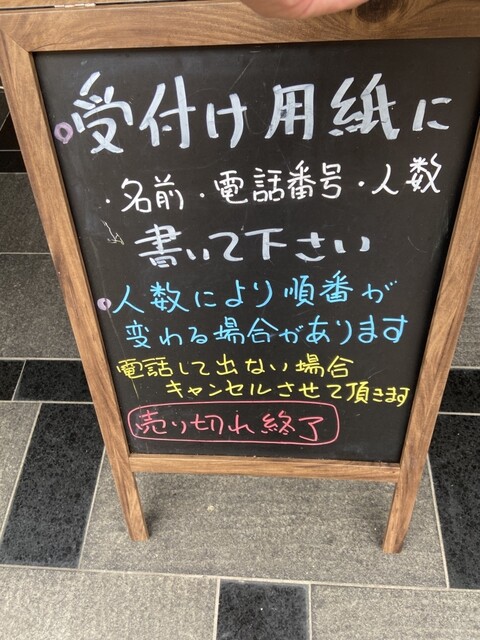 ○受付け用紙に
・名前・電話番号・人数
書いて下さい
○人数により順番が
変わる場合があります
電話して出ない場合
キャンセルさせて頂きます
売り切れ終了